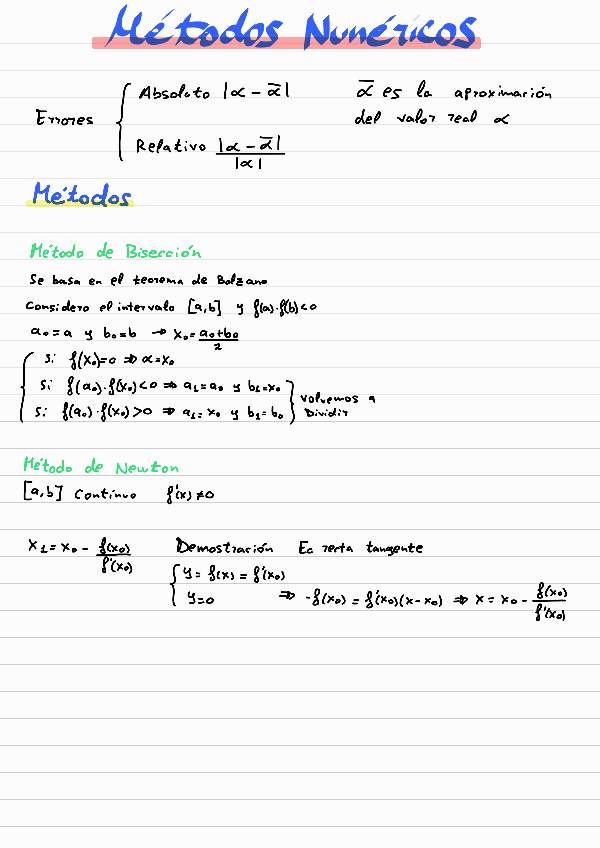 Métodos Numéricos
Errores { Absoluto |α - ᾱ|
Relativo |α - ᾱ| / |α|
ᾱ es la aproximación
del valor real α
Métodos
Método de Bisección
Se basa en el teorema de Bolzano
Considero el intervalo [a,b] y f(a)·f(b)<0
a₀=a y b₀=b → x₀= (a₀+b₀)/2
Si f(x₀)=0 ⇒ α=x₀
Si f(a₀)·f(x₀)<0 ⇒ a₁=a₀ y b₁=x₀
Si f(a₀)·f(x₀)>0 ⇒ a₁=x₀ y b₁=b₀
} volvemos a
Dividir
Método de Newton
[a,b] Continuo f'(x)≠0
x₁=x₀ - f(x₀)/f'(x₀) Demostración Ec recta tangente
{ y= f(x) = f'(x₀)
y=0 ⇒ -f(x₀) = f'(x₀)(x-x₀) ⇒ x = x₀ - f(x₀)/f'(x₀)